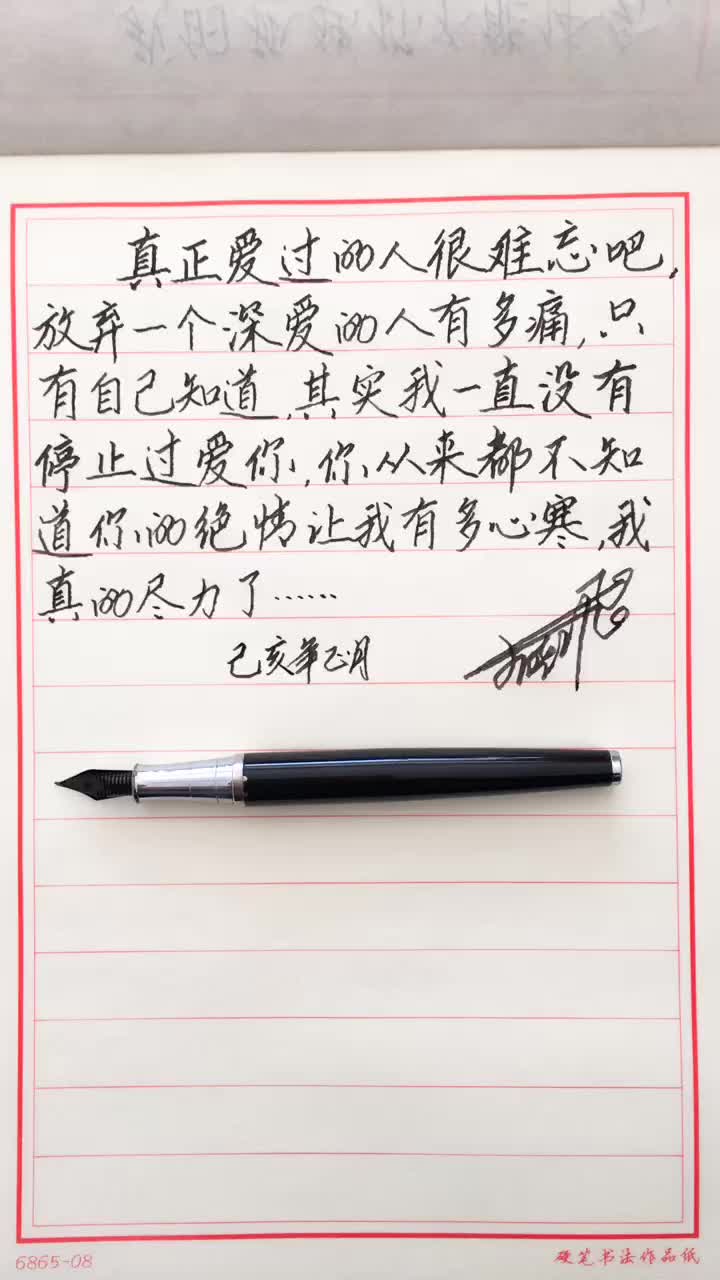 真正爱过的人很难忘吧,
放弃一个深爱的人有多痛,只
有自己知道,其实我一直没有
停止过爱你,你从来都不知
道你的绝情让我有多心寒,我
真的尽力了……
己亥年正月
6865-08
硬笔书法作品纸